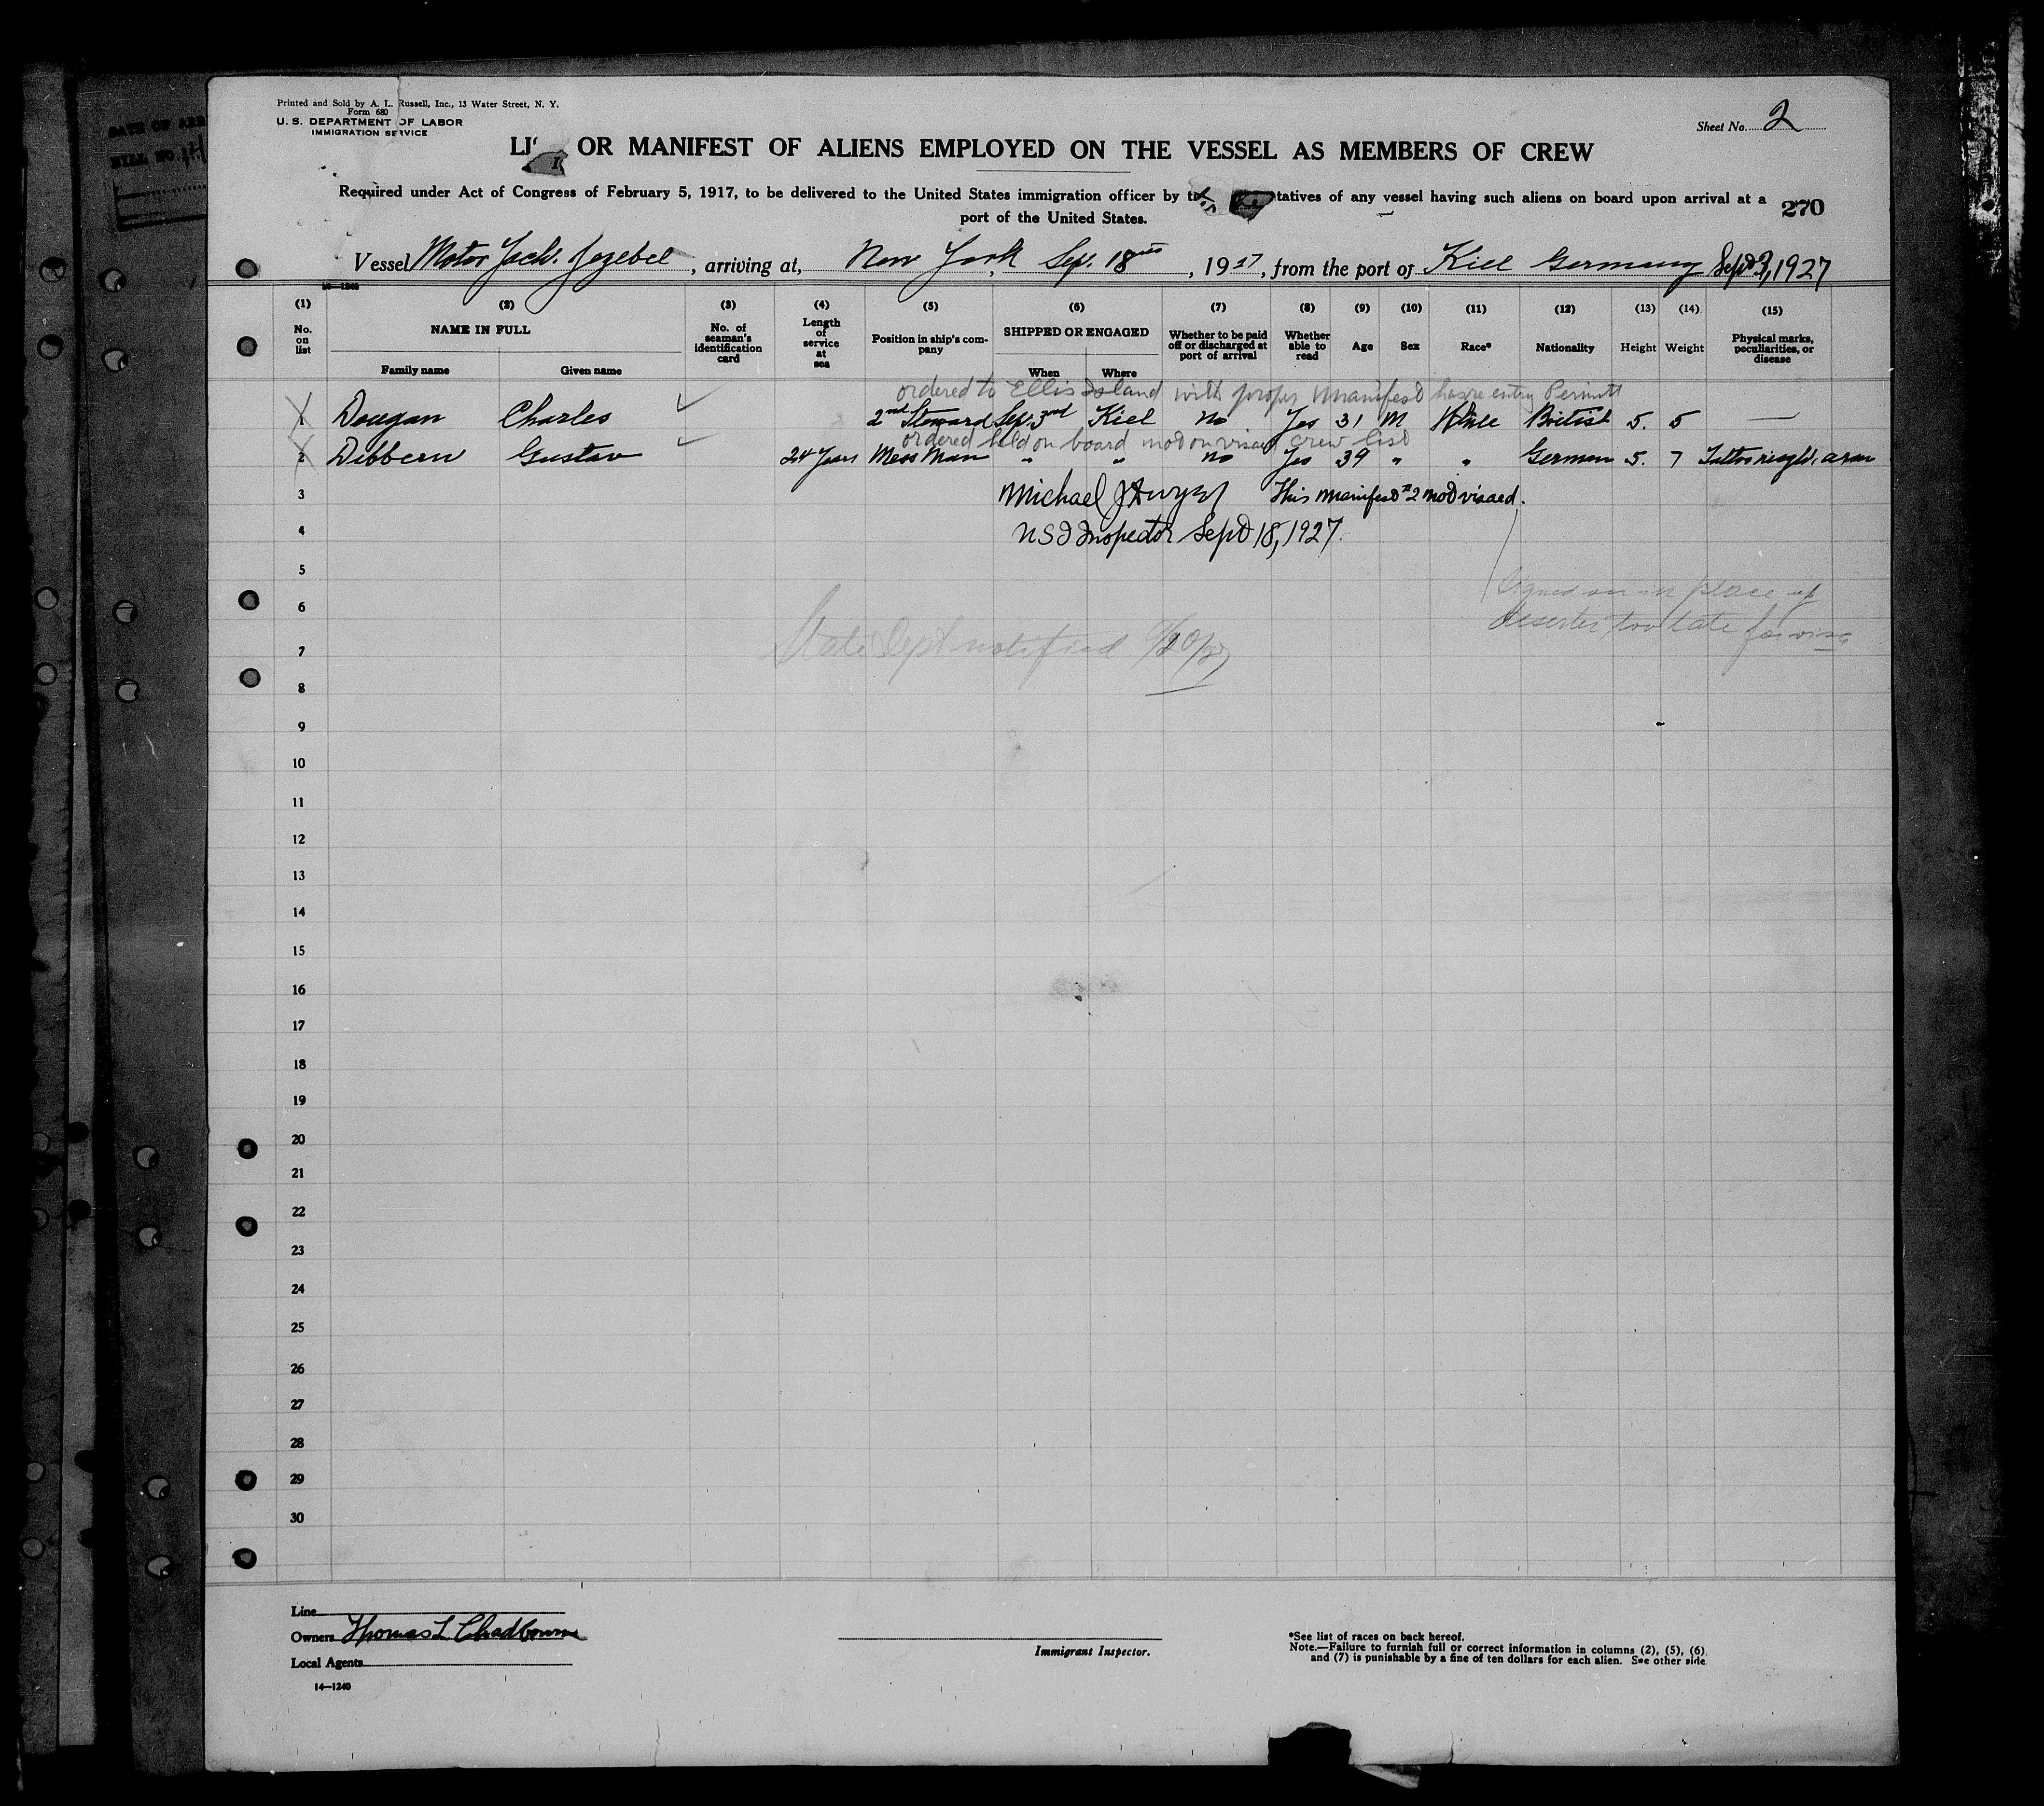 Printed and Sold by A. L. Russell, Inc., 13 Water Street, N. Y.
Form 680
U. S. DEPARTMENT OF LABOR
IMMIGRATION SERVICE
Sheet No. 2
OR MANIFEST OF ALIENS EMPLOYED ON THE VESSEL AS MEMBERS OF CREW
Required under Act of Congress of February 5, 1917, to be delivered to the United States immigration officer by tatives of any vessel having such aliens on board upon arrival at a
port of the United States.
270
Vessel Motor Jach. Jezebel, arriving at, New York, Sep. 18, 1927, from the port of Kiel Germany Sept 3, 1927
(1) (2) (3) (4) (5) (6) (7) (8) (9) (10) (11) (12) (13) (14) (15)
No. on list
NAME IN FULL
Family name
Given name
No. of seaman's identification card
Length of service at sea
Position in ship's company
SHIPPED OR ENGAGED
When
Where
Whether to be paid off or discharged at port of arrival
Whether able to read
Age
Sex
Race*
Nationality
Height
Weight
Physical marks, peculiarities, or disease
ordered to Ellis Island with proper manifest has re entry Permit
1 Dougan Charles 2nd Steward Sep. 3rd Kiel No Yes 31 M White British 5. 5 —
ordered held on board not on visaed crew list
2 Dibbern Gustav 24 Years Mess Man " " no Yes 39 " " German 5. 7 arm
3 Michael This Manifest #2 not visaed.
4 Inspector Sept 18, 1927.
5
6 Signed on in place of
deserter too late for visa
7 State Dept notified 9/20/27
8
9
10
11
12
13
14
15
16
17
18
19
20
21
22
23
24
25
26
27
28
29
30
Line
Owners Thomas L Chadbourne
Local Agents
14—1240
Immigrant Inspector.
*See list of races on back hereof.
Note.—Failure to furnish full or correct information in columns (2), (5), (6)
and (7) is punishable by a fine of ten dollars for each alien. See other side